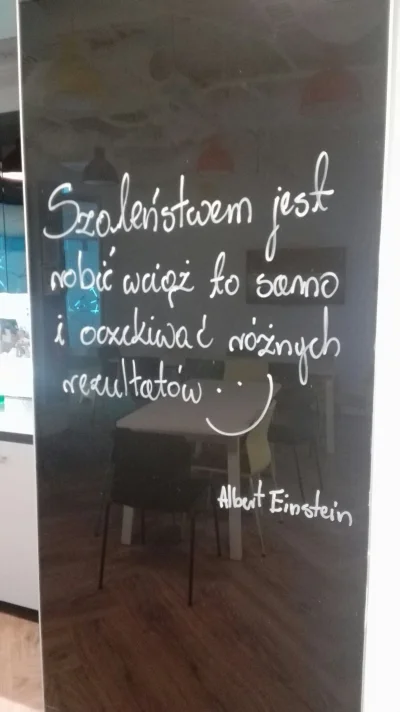 Szaleństwem jest
robić wciąż to samo
i oczekiwać różnych
rezultatów
Albert Einstein